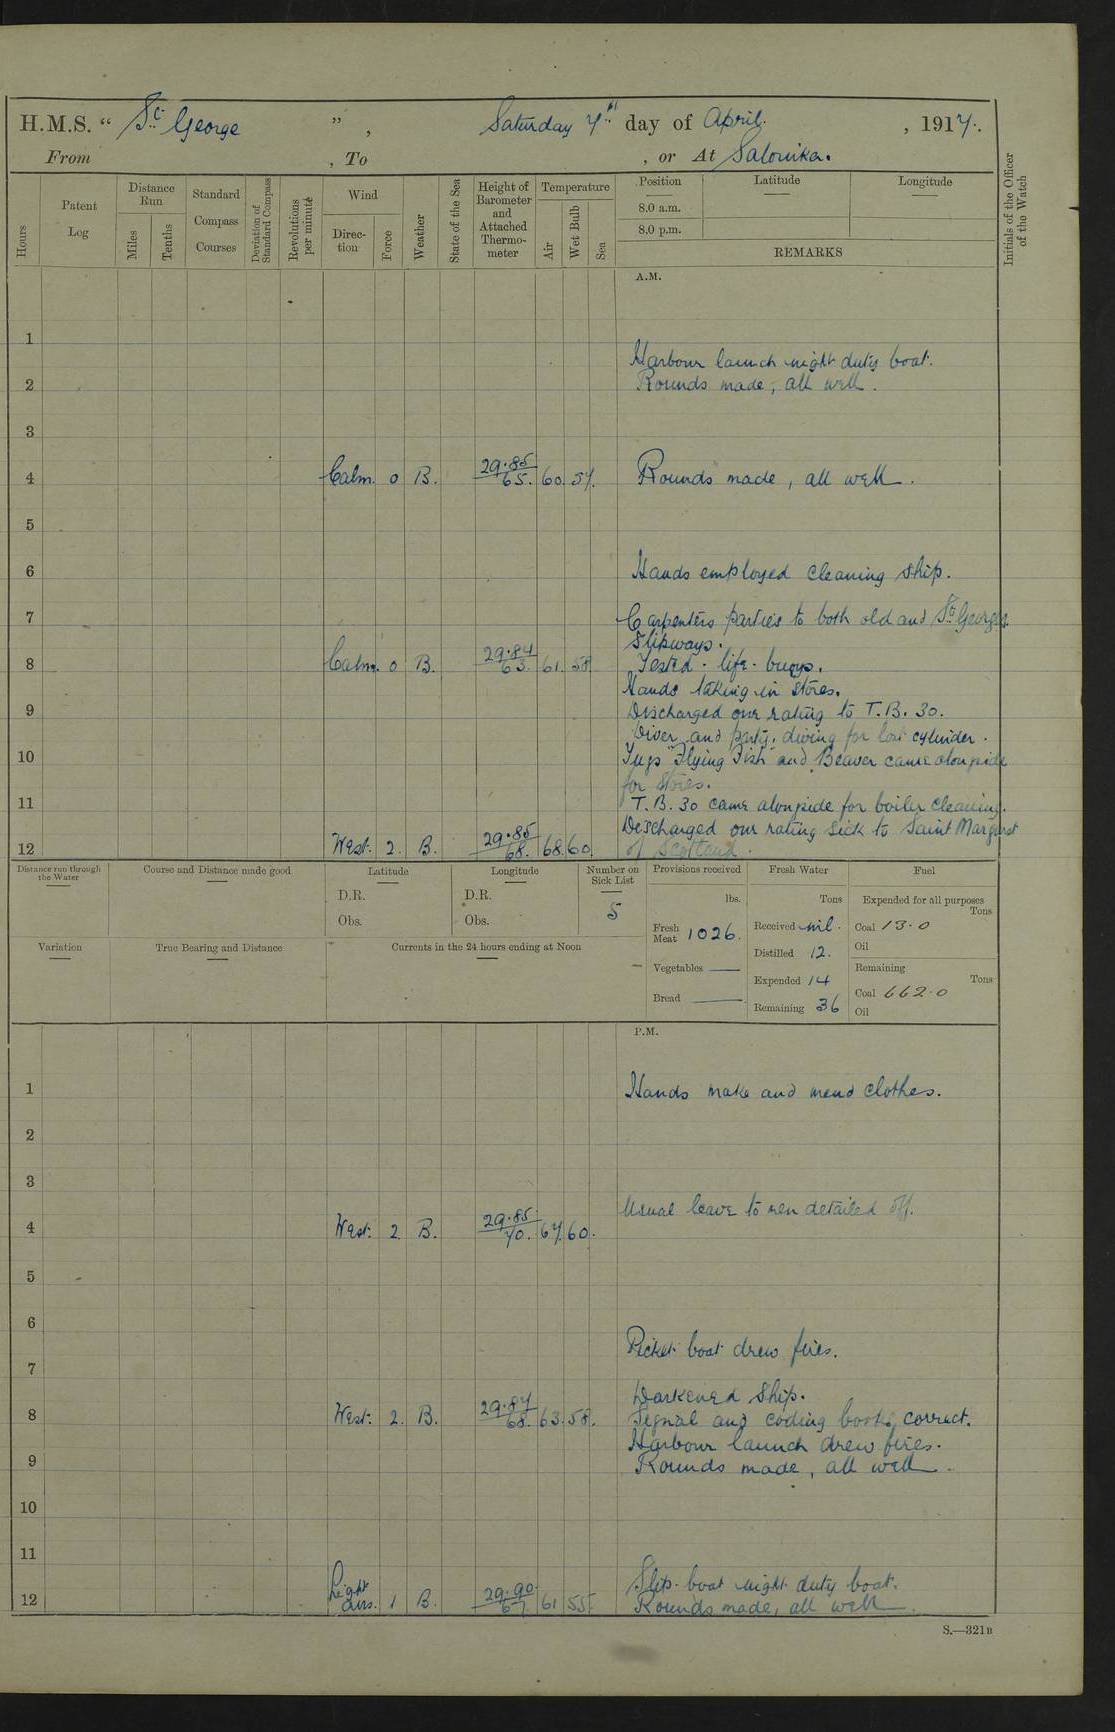 H.M.S. “ St. George ” , Saturday 7th day of April. , 1917.
From , To , or At Salonika.
Hours
Patent Log
Distance Run
Miles
Tenths
Standard Compass Courses
Deviation of Standard Compass
Revolutions per minute
Wind
Direction
Force
Weather
State of the Sea
Height of Barometer and Attached Thermometer
Temperature
Air
Wet Bulb
Sea
Position
Latitude
Longitude
8.0 a.m.
8.0 p.m.
REMARKS
Initials of the Officer of the Watch
A.M.
1
Harbour launch night duty boat.
2 Rounds made, all well.
3
4 Calm. 0 B. 29.85 65. 60. 57. Rounds made, all well.
5
6 Hands employed cleaning ship.
7 Carpenters parties to both old and St. Georges
slipways.
8 Calm. 0 B. 29.84 63. 61. 58 Tested life buoys.
Hands taking in stores.
9 Discharged one rating to T.B. 30.
Diver and party, diving for lost cylinder.
10 Tugs "Flying Fish" and Beaver came alongside
for stores.
11 T.B. 30 came alongside for boiler cleaning.
Discharged one rating sick to Saint Margaret
12 West. 2. B. 29.85 68. 68. 60. of Scotland.
Distance run through the Water
Course and Distance made good
Latitude
D.R.
Obs.
Longitude
D.R.
Obs.
Number on Sick List
5
Provisions received
lbs.
Fresh Meat 1026.
Vegetables ——
Bread ——
Fresh Water
Tons
Received nil.
Distilled 12.
Expended 14
Remaining 36
Fuel
Expended for all purposes
Tons
Coal 13.0
Oil
Remaining
Tons
Coal 662.0
Oil
Variation
True Bearing and Distance
Currents in the 24 hours ending at Noon
P.M.
1 Hands make and mend clothes.
2
3
Usual leave to men detailed off.
4 West. 2. B. 29.85 70. 67. 60.
5
6
Picket boat drew fires.
7
Darkened ship.
8 West. 2. B. 29.87 68. 63. 58. Signal and coding books correct.
Harbour launch drew fires.
9 Rounds made, all well.
10
11
Slip boat night duty boat.
12 Light airs. 1 B. 29.90 67. 61 55. Rounds made, all well.
S.—321B